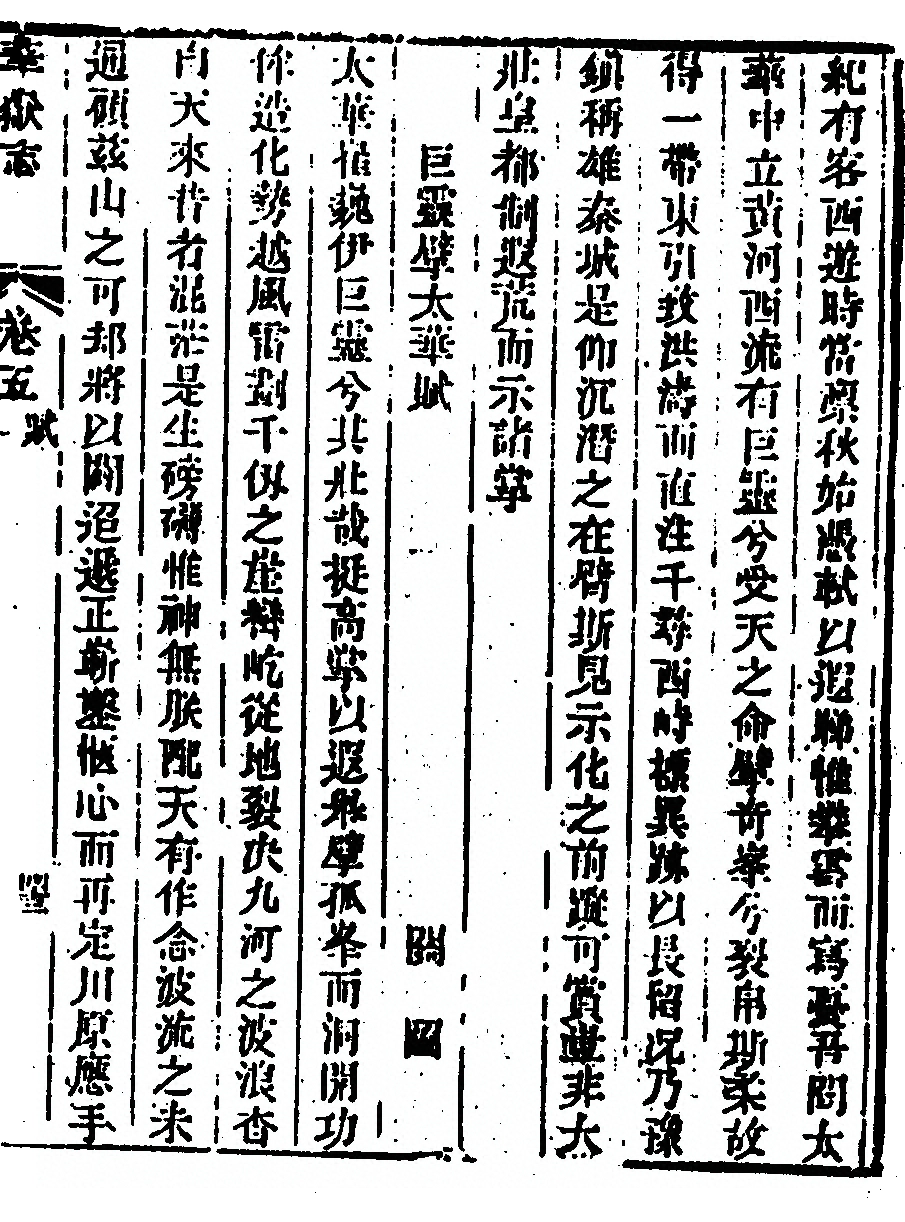 紀有客西遊時當凜秋始憑軾以遐睇惟攀雲而寫憂吾聞太
華中立黃河西流有巨靈兮受天之命擘奇峯兮裂帛斯柔故
得一帶東引致洪濤而直注千尋西峙標異跡以長留況乃豫
鎮稱雄秦城是仰沉潛之在臂斯見示化之前蹤可賞豈非太
壯皇都制遐荒而示諸掌
巨靈擘太華賦
關 圖
太華掎巍伊巨靈兮共壯哉挺高掌以遐聚擘孤峯而洞開功
侔造化勢越風雷劃千仭之崖巒屹從地裂決九河之波浪杳
自天來昔者混茫是生磅礴惟神無朕配天有作念波流之未
逈碩茲山之可却將以闢迢遞正嶄鑿愜心而再定川原應手
華嶽志
卷五
賦